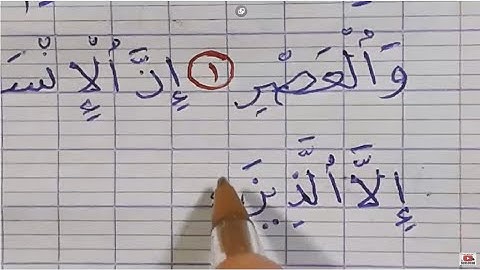 وَٱلْعَصْرِ ١ إِنَّ ٱلْإِنْسَـ
إِلَّا ٱلَّذِينَ